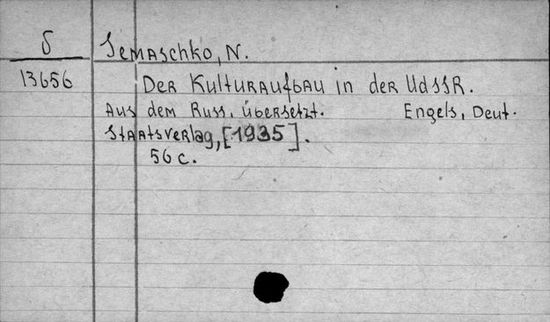 δ
Semaschko, N.
13656
Der Kulturaufbau in der UdSSR.
Aus dem Russ. übersetzt. Engels, Deut.
Staatsverlag, [1935].
56 c.